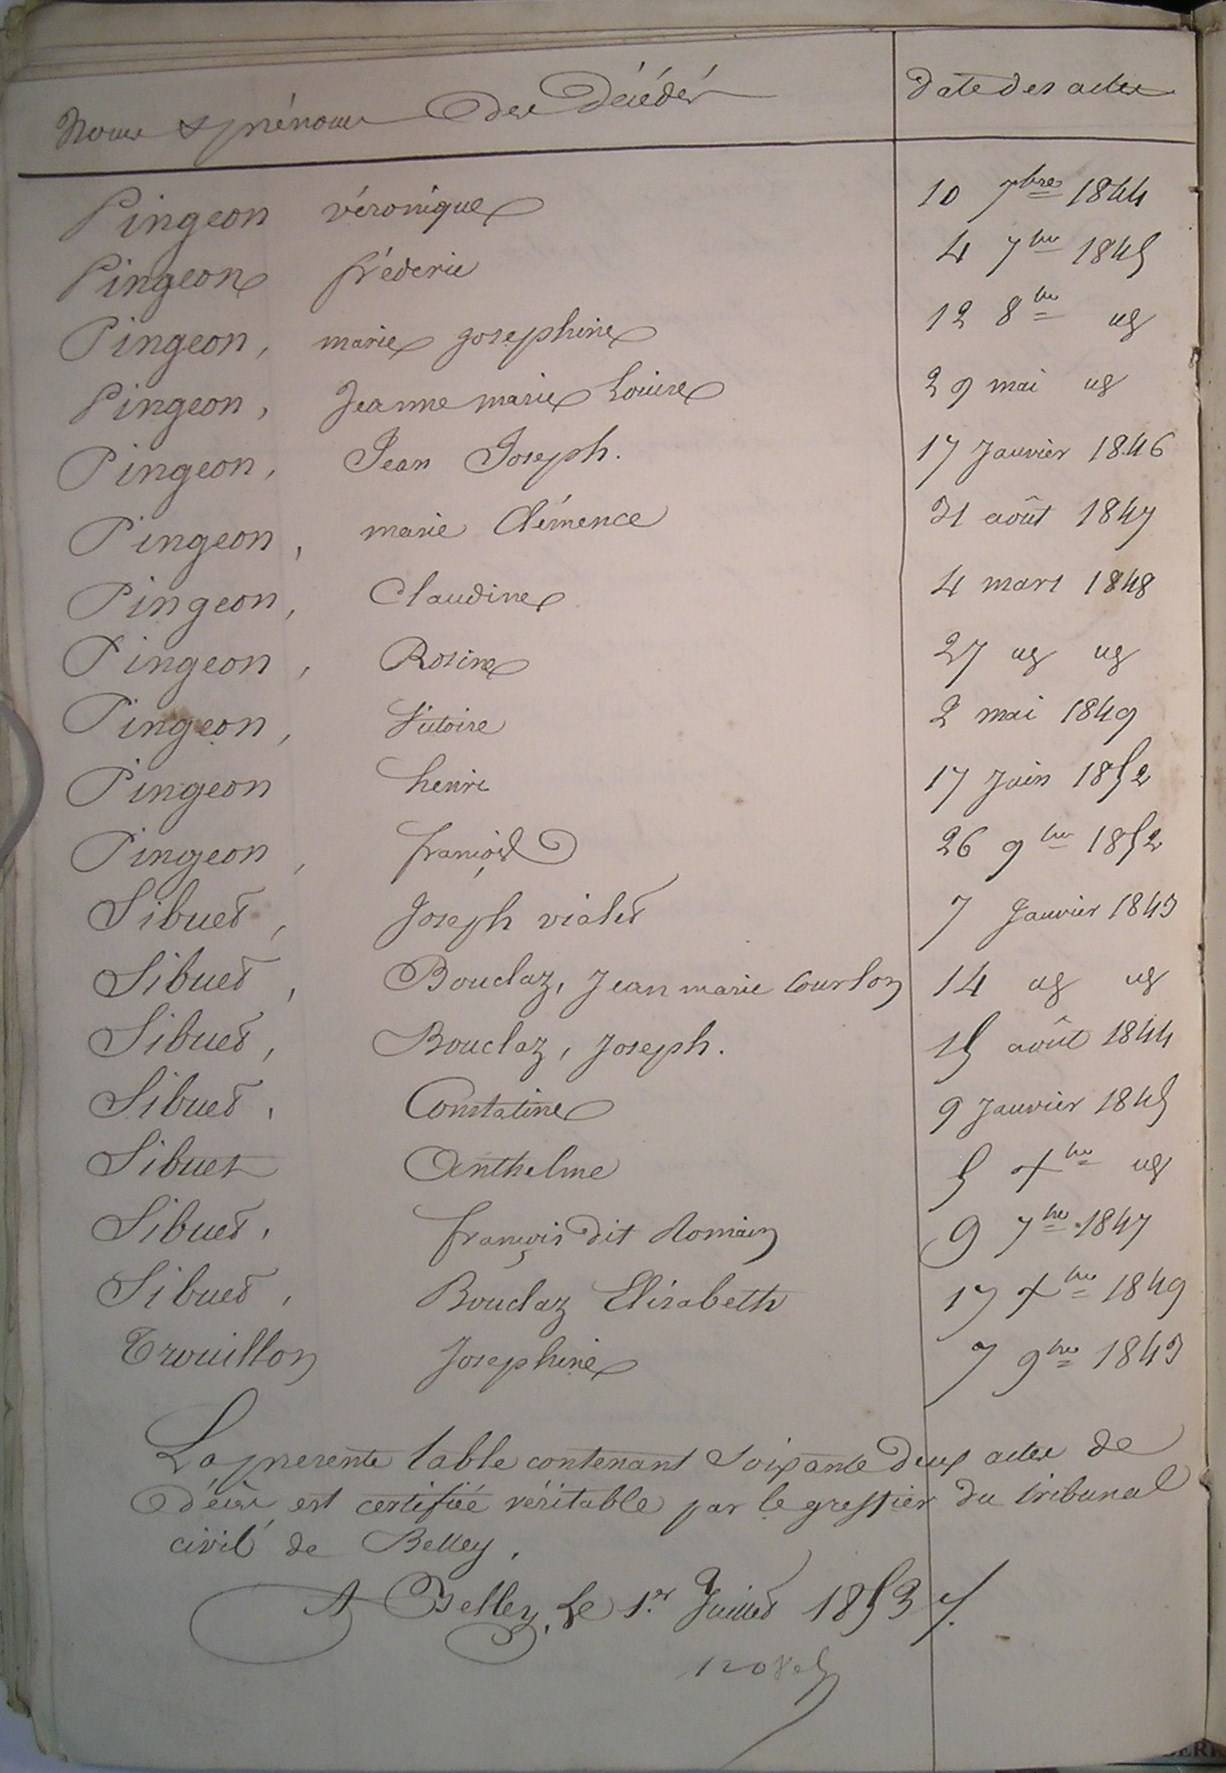 Noms & prénoms des Décédés Date des actes
Pingeon véronique 10 7bre 1844
Pingeon fréderic 4 7bre 1845
Pingeon, marie josephine 12 8bre id
Pingeon, Jeanne marie Louise 29 mai id
Pingeon, Jean Joseph. 17 Janvier 1846
Pingeon, marie Clémence 31 août 1847
Pingeon, Claudine 4 mars 1848
Pingeon, Rosine 27 id id
Pingeon, Victoire 2 mai 1849
Pingeon henri 17 Juin 1852
Pingeon, françois 26 9bre 1852
Sibuet, Joseph vialet 7 Janvier 1843
Sibuet, Bouclaz, Jean marie Courlon 14 id id
Sibuet, Bouclaz, Joseph. 15 août 1844
Sibuet, Constatine 9 Janvier 1845
Sibuet Anthelme 5 Xbre id
Sibuet, françois dit Romain 9 7bre 1847
Sibuet, Bouclaz Elisabeth 17 Xbre 1849
Trouillon Josephine 7 9bre 1843
La presente table contenant Soixante Deux actes de
Décès, est certifiée véritable par le greffier du tribunal
civil de Belley.
A Belley, Le 1er Juillet 1853 /.